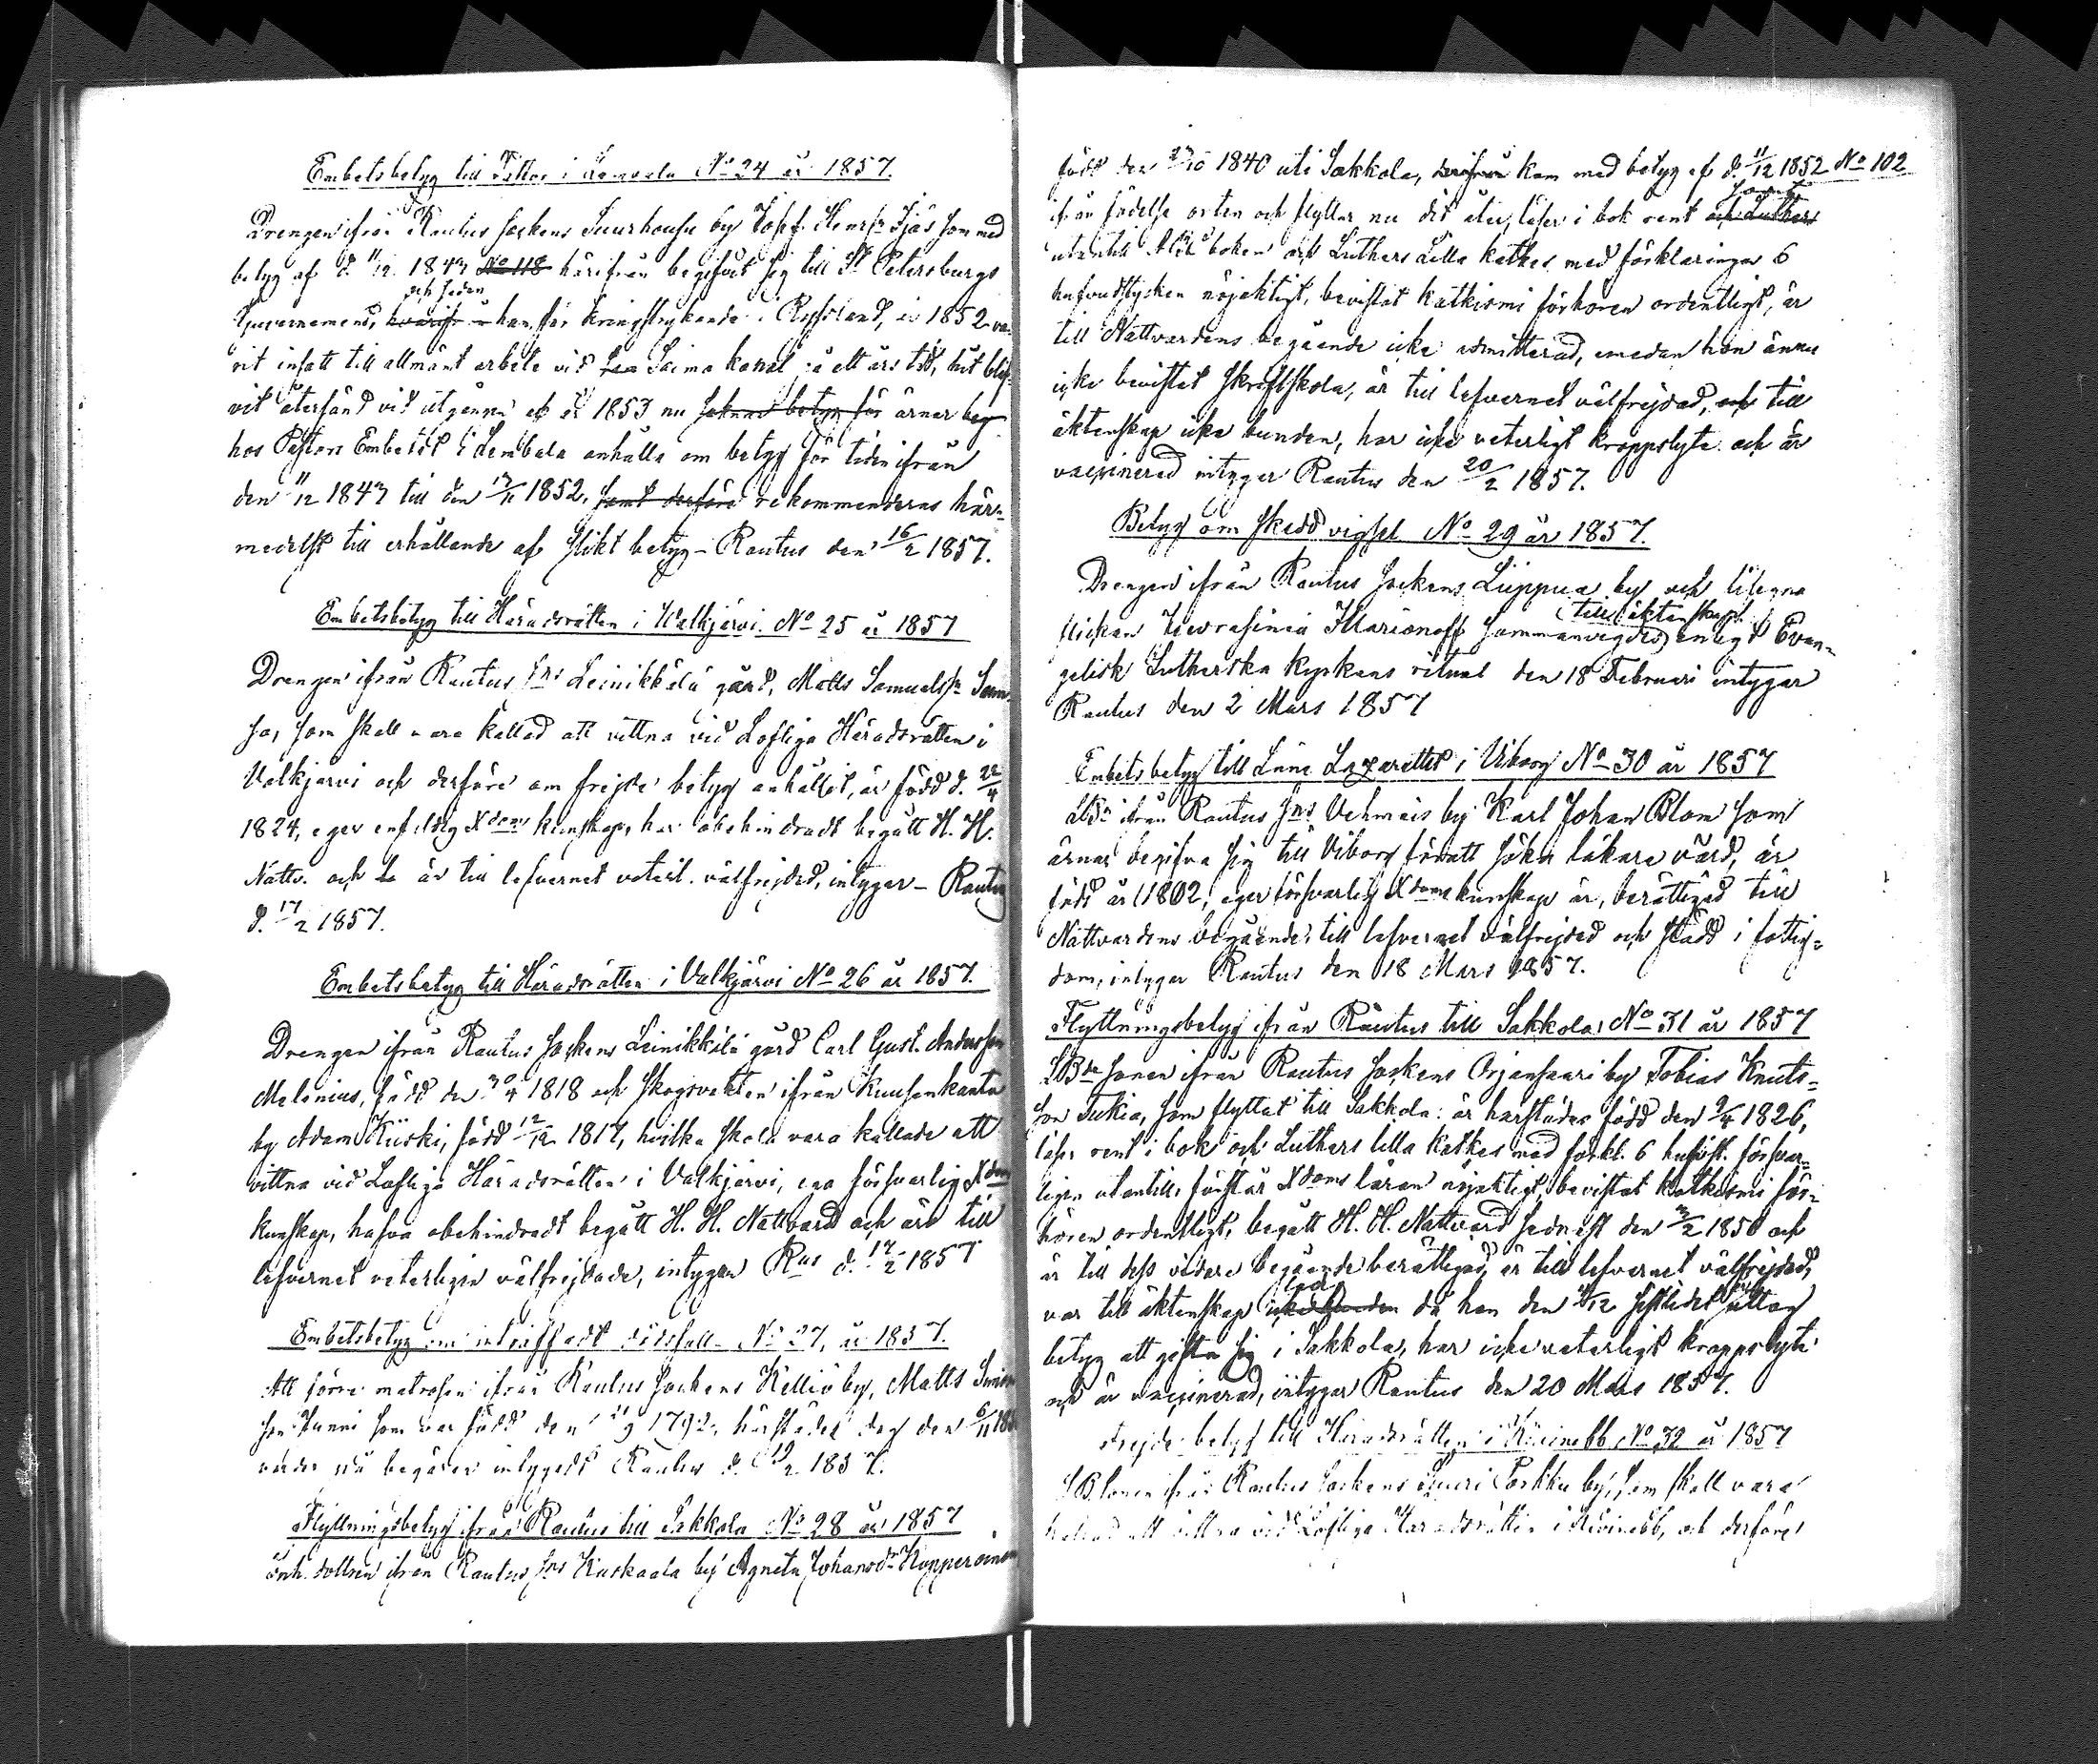 Embetsbetyg till Pastor i Lembala No 24 år 1857.
Drengen ifrån Rautus sockens Suurhousu by Josef Henrss. Ijäs som med
betyg af d. 11/12 1847 No 118 härifrån begifvit sig till St Petersburgs
Guvernement, och sedan han för kringstrykande i Ryssland, år 1852 va-
rit insatt till allmänt arbete vid Saima kanal på ett års tid, hit blif-
vit återsänd vid utgången af år 1853 nu saknad betyg för ärnar
hos Pastors Embetet i Lembala anhålla om betyg för tiden ifrån
den 11/12 1847 till den 17/11 1852, samt derföre rekommenderas här-
medelst till erhållande af slikt betyg – Rautus den 16/2 1857.
Embetsbetyg till Häradsrätten i Walkjärvi No 25 år 1857
Drengen ifrån Rautus sns Leinikkälä gård, Matts Samuelss.
som skall vara kallad att vittna vid Lofliga Häradsrätten i
Valkjärvi och derföre om frejde betyg anhållit, är född d. 22/4
1824, eger enfaldig Xdoms kunskap, har obehindradt begått H. H.
Nattv. och är till lefvernet veterl. välfrejdad, intygar – Rautus
d. 17/2 1857.
Embetsbetyg till Häradsrätten i Valkjärvi No 26 år 1857.
Drengen ifrån Rautus sockens Leinikkälä gård Carl Gust. Andersson
Melenius, född den 30/4 1818 och skogsvakten ifrån Kuusenkanta
by Adam Kiiski, född 12/12 1817, hvilka skola vara kallade att
vittna vid Lofliga Häradsrätten i Valkjärvi, ega försvarlig Xdoms
kunskap, hafva obehindradt begått H. H. Nattvard och äro till
lefvernet veterligen välfrejdade, intygar Rus d. 17/2 1857
Embetsbetyg om inträffadt dödsfall No 27, år 1857.
Att förre matrosen ifrån Rautus sockens Kelliö by, Matts
son som var född den 1792, härstädes dog den 6/11
varder på begäran intygadt Rautus d. 1857.
Flyttningsbetyg ifrån Rautus till Sakkola No 28 år 1857
dottren ifrån Rautus sns Kaskaala by Agneta Johansdr Kopperoinen
född den 27/10 1840 uti Sakkola, derifrån kom med betyg af d. 11/12 1852 No 102
ifrån födelse orten och flyttar nu dit åter, läser i bok rent samt och Luthers
utantill A b c boken och Luthers Lilla Kathes med förklaringar 6
hufvudstycken nöjaktigt, bevistat katkismi förhören ordentligt, är
till Nattvardens begående icke admitterad, emedan hon ännu
icke bevistat skriftskola, är till lefvernet välfrejdad, och till
äktenskap icke bunden, har icke veterligt kroppslyte och är
vaccinerad intygar Rautus den 20/2 1857.
Betyg om skedd vigsel No 29 år 1857.
Drengen ifrån Rautus sockens Liippua by och lösegna
flickan Iewrasinia Ilarionoff sammanvigdes till äktenskap enligt Evan-
gelisk Lutherska kyrkans ritual den 18 Februari intygar
Rautus den 2 Mars 1857
Embetsbetyg till Läns Lazarettet i Viborg No 30 år 1857
ifrån Rautus sns Vehmais by Karl Johan Blom som
ärnar begifva sig till Viborg föratt söka läkare vård, är
född år 1802, eger försvarlig Xdoms kunskap är, berättigad till
Nattvardens begående, till lefvernet välfrejdad och stadd i fattig-
dom, intygar Rautus den 18 Mars 1857.
Flyttningsbetyg ifrån Rautus till Sakkola No 31 år 1857
LBde sonen ifrån Rautus sockens Orjansaari by Tobias Knuts-
son Tukia, som flyttat till Sakkola: är härstädes född den 9/4 1826,
läser rent i bok och Luthers lilla Katkes med förkl. 6 hufvst. försvar-
ligen utantill, förstår Xdoms läran nöjaktigt, bevistat katkismi för-
hören ordentligt, begått H. H. Nattvard sednast den 2/2 1856 och
är till dess vidare begående berättigad, är till lefvernet välfrejdad,
var till äktenskap ledig icke bunden då han den 11/12 sistlidet uttog
betyg att gifta sig i Sakkola, har icke veterligt kroppslyte
och är vaccinerad, intygar Rautus den 20 Mars 1857.
Frejde betyg till Häradsrätten i Kivinebb No 32 år 1857
LB. sonen ifrån Rautus sockens Suuri Porkku by, som skall vara
kallad att vittna vid Lofliga Häradsrätten i Kivinebb, och derföre